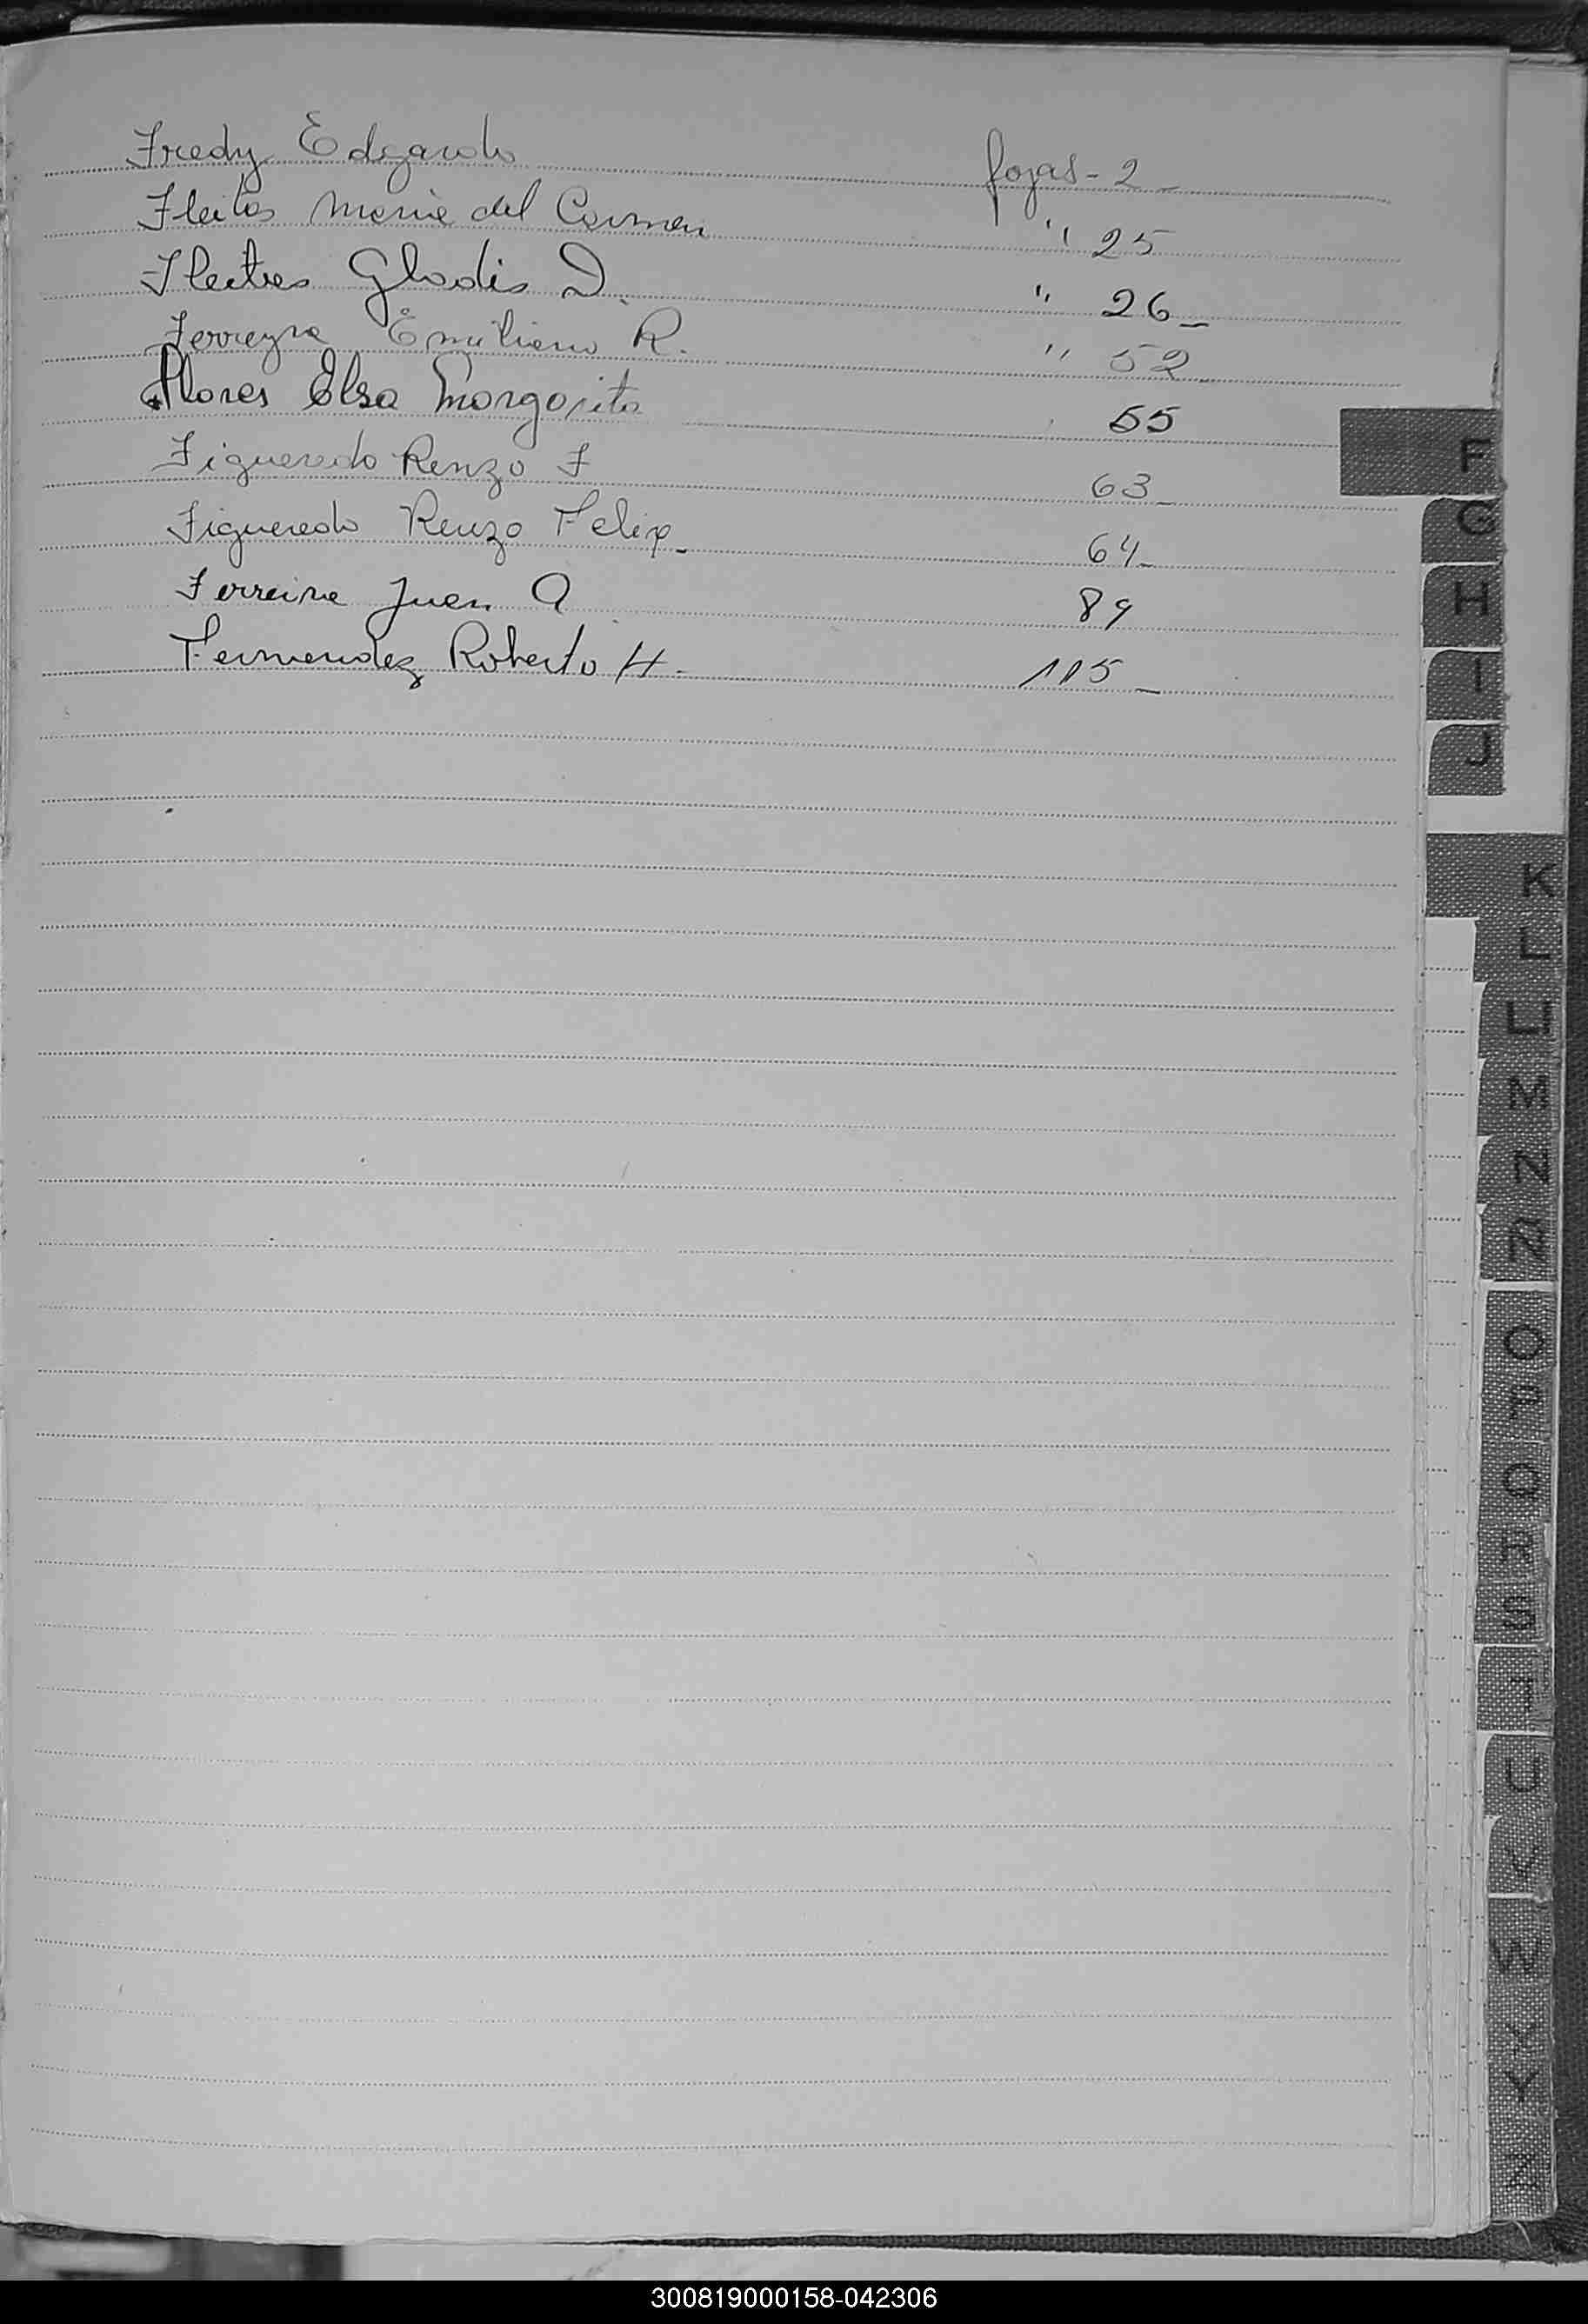 Fredy Edgardo fojas - 2 -
Fleitas Maria del Carmen " 25
Fleitas Gladis D. " 26 -
Ferreyra Emiliano R. " 52 -
Flores Elsa Margarita 55
Figueredo Renzo F 63 -
Figueredo Renzo Felix - 64 -
Ferreira Juan A 89
Fernandez Roberto H. 115 -
F
G
H
I
J
K
L
LL
M
N
Ñ
O
P
Q
R
S
T
U
V
W
X
Y
Z
300819000158-042306